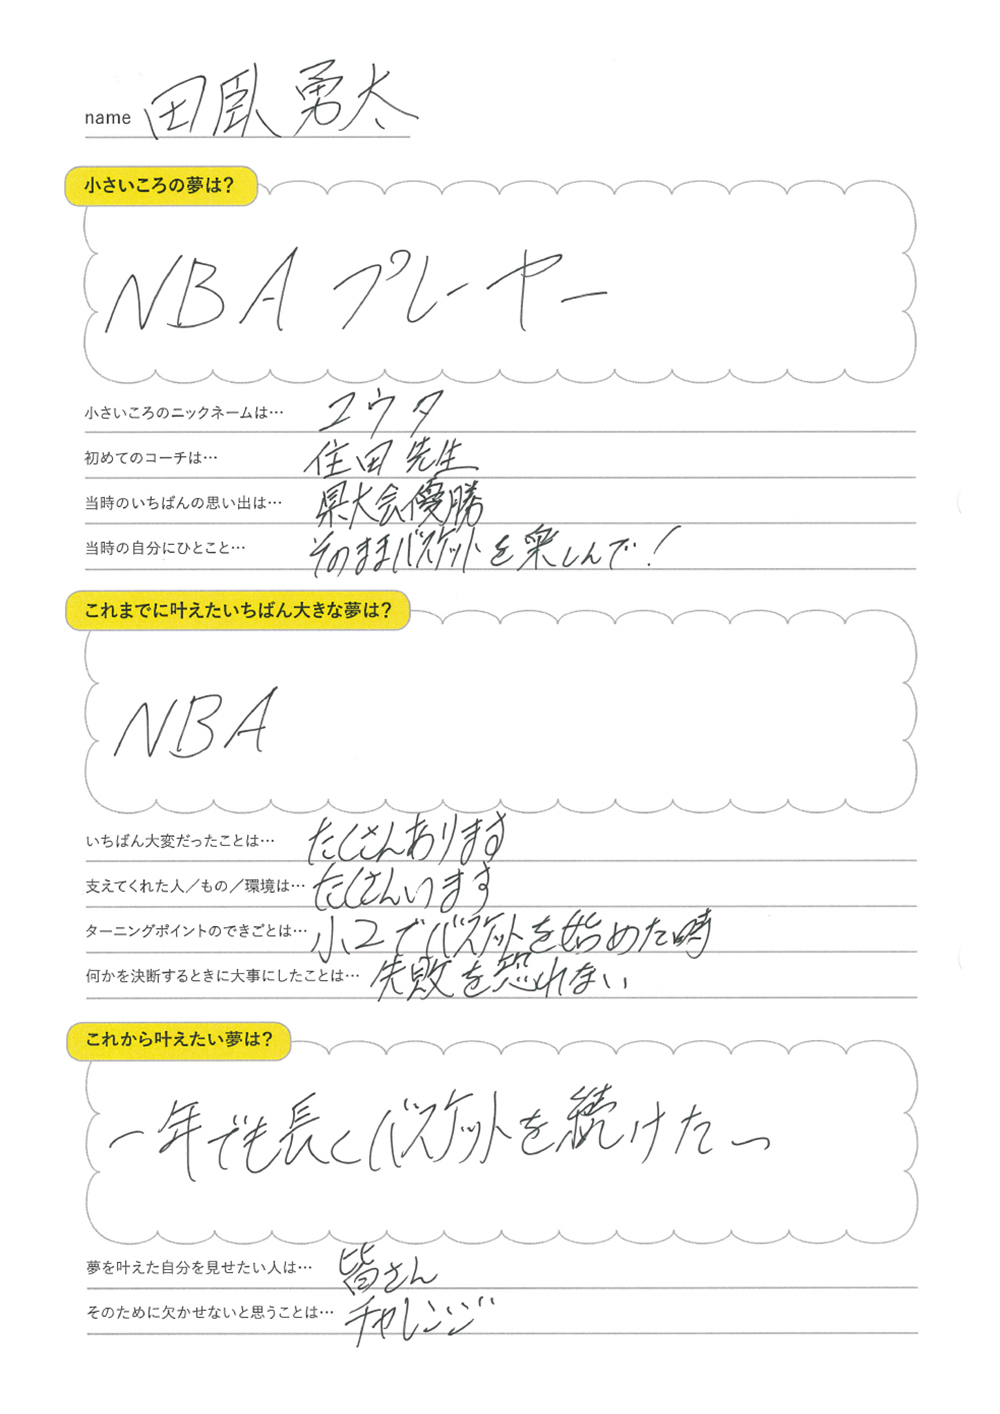 name 田臥 勇太
小さいころの夢は?
NBA プレーヤー
小さいころのニックネームは… ユウタ
初めてのコーチは… 住田 先生
当時のいちばんの思い出は… 県大会優勝
当時の自分にひとこと… そのままバスケットを楽しんで!
これまでに叶えたいちばん大きな夢は?
NBA
いちばん大変だったことは… たくさんあります
支えてくれた人／もの／環境は… たくさんいます
ターニングポイントのできごとは… 小2でバスケットを始めた時
何かを決断するときに大事にしたことは… 失敗を恐れない
これから叶えたい夢は?
一年でも長くバスケットを続けたい
夢を叶えた自分を見せたい人は… 皆さん
そのために欠かせないと思うことは… チャレンジ